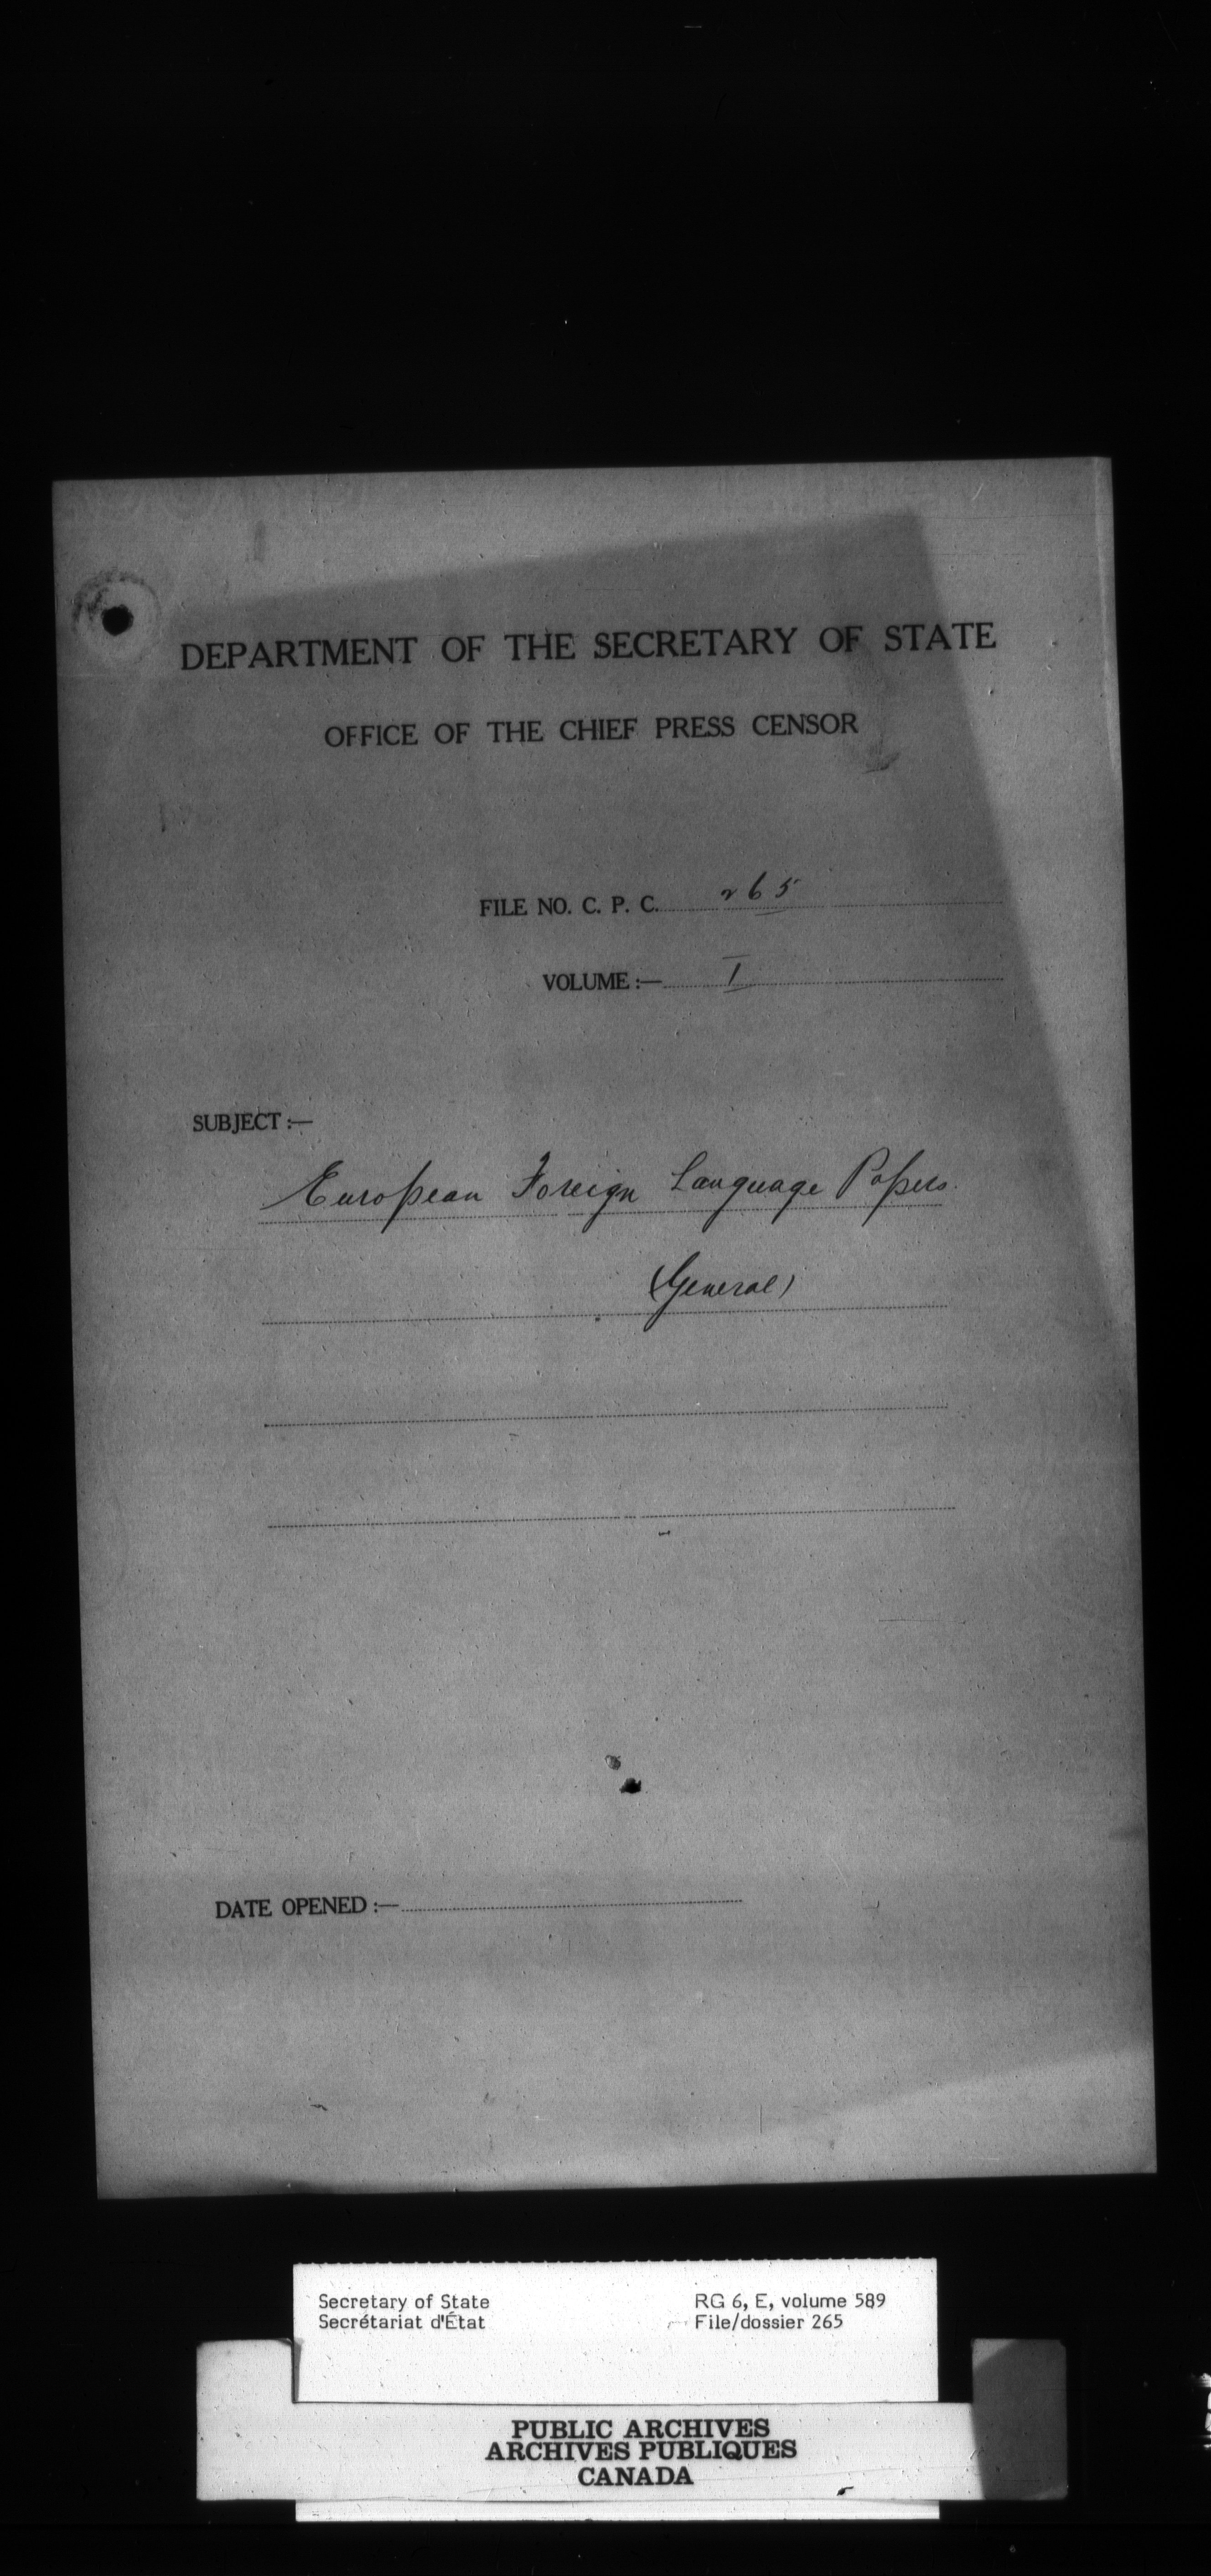 DEPARTMENT OF THE SECRETARY OF STATE
OFFICE OF THE CHIEF PRESS CENSOR
FILE NO. C. P. C. 265
VOLUME :— I
SUBJECT :—
European Foreign Language Papers.
(General)
DATE OPENED :—
Secretary of State RG 6, E, volume 589
Secrétariat d'État File/dossier 265
PUBLIC ARCHIVES
ARCHIVES PUBLIQUES
CANADA